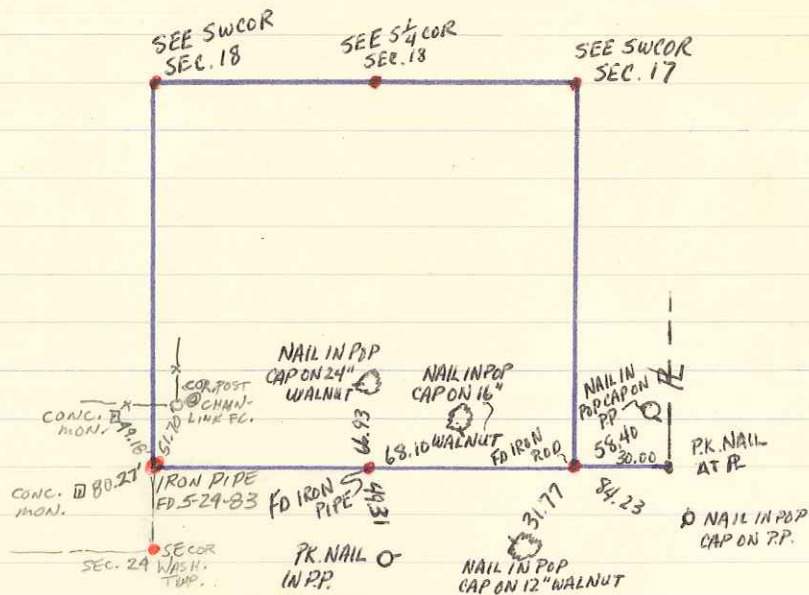 SEE SWCOR
SEC. 18
SEE S 1/4 COR
SEC. 18
SEE SWCOR
SEC. 17
NAIL IN POP
CAP ON 24"
WALNUT
NAIL IN POP
CAP ON 16"
WALNUT
NAIL IN
POP CAP ON
P.P.
PL
COR. POST
@ CHAIN-
LINK FC.
CONC.
MON.
49.18
51.70
66.93
68.10
FD IRON
ROD
58.40
30.00
P.K. NAIL
AT PL
84.23
CONC.
MON.
80.27'
IRON PIPE
FD. 5-29-83
FD IRON
PIPE
49.31
31.77
NAIL IN POP
CAP ON P.P.
SE COR
SEC. 24
WASH.
TWP.
PK. NAIL
IN P.P.
NAIL IN POP
CAP ON 12" WALNUT